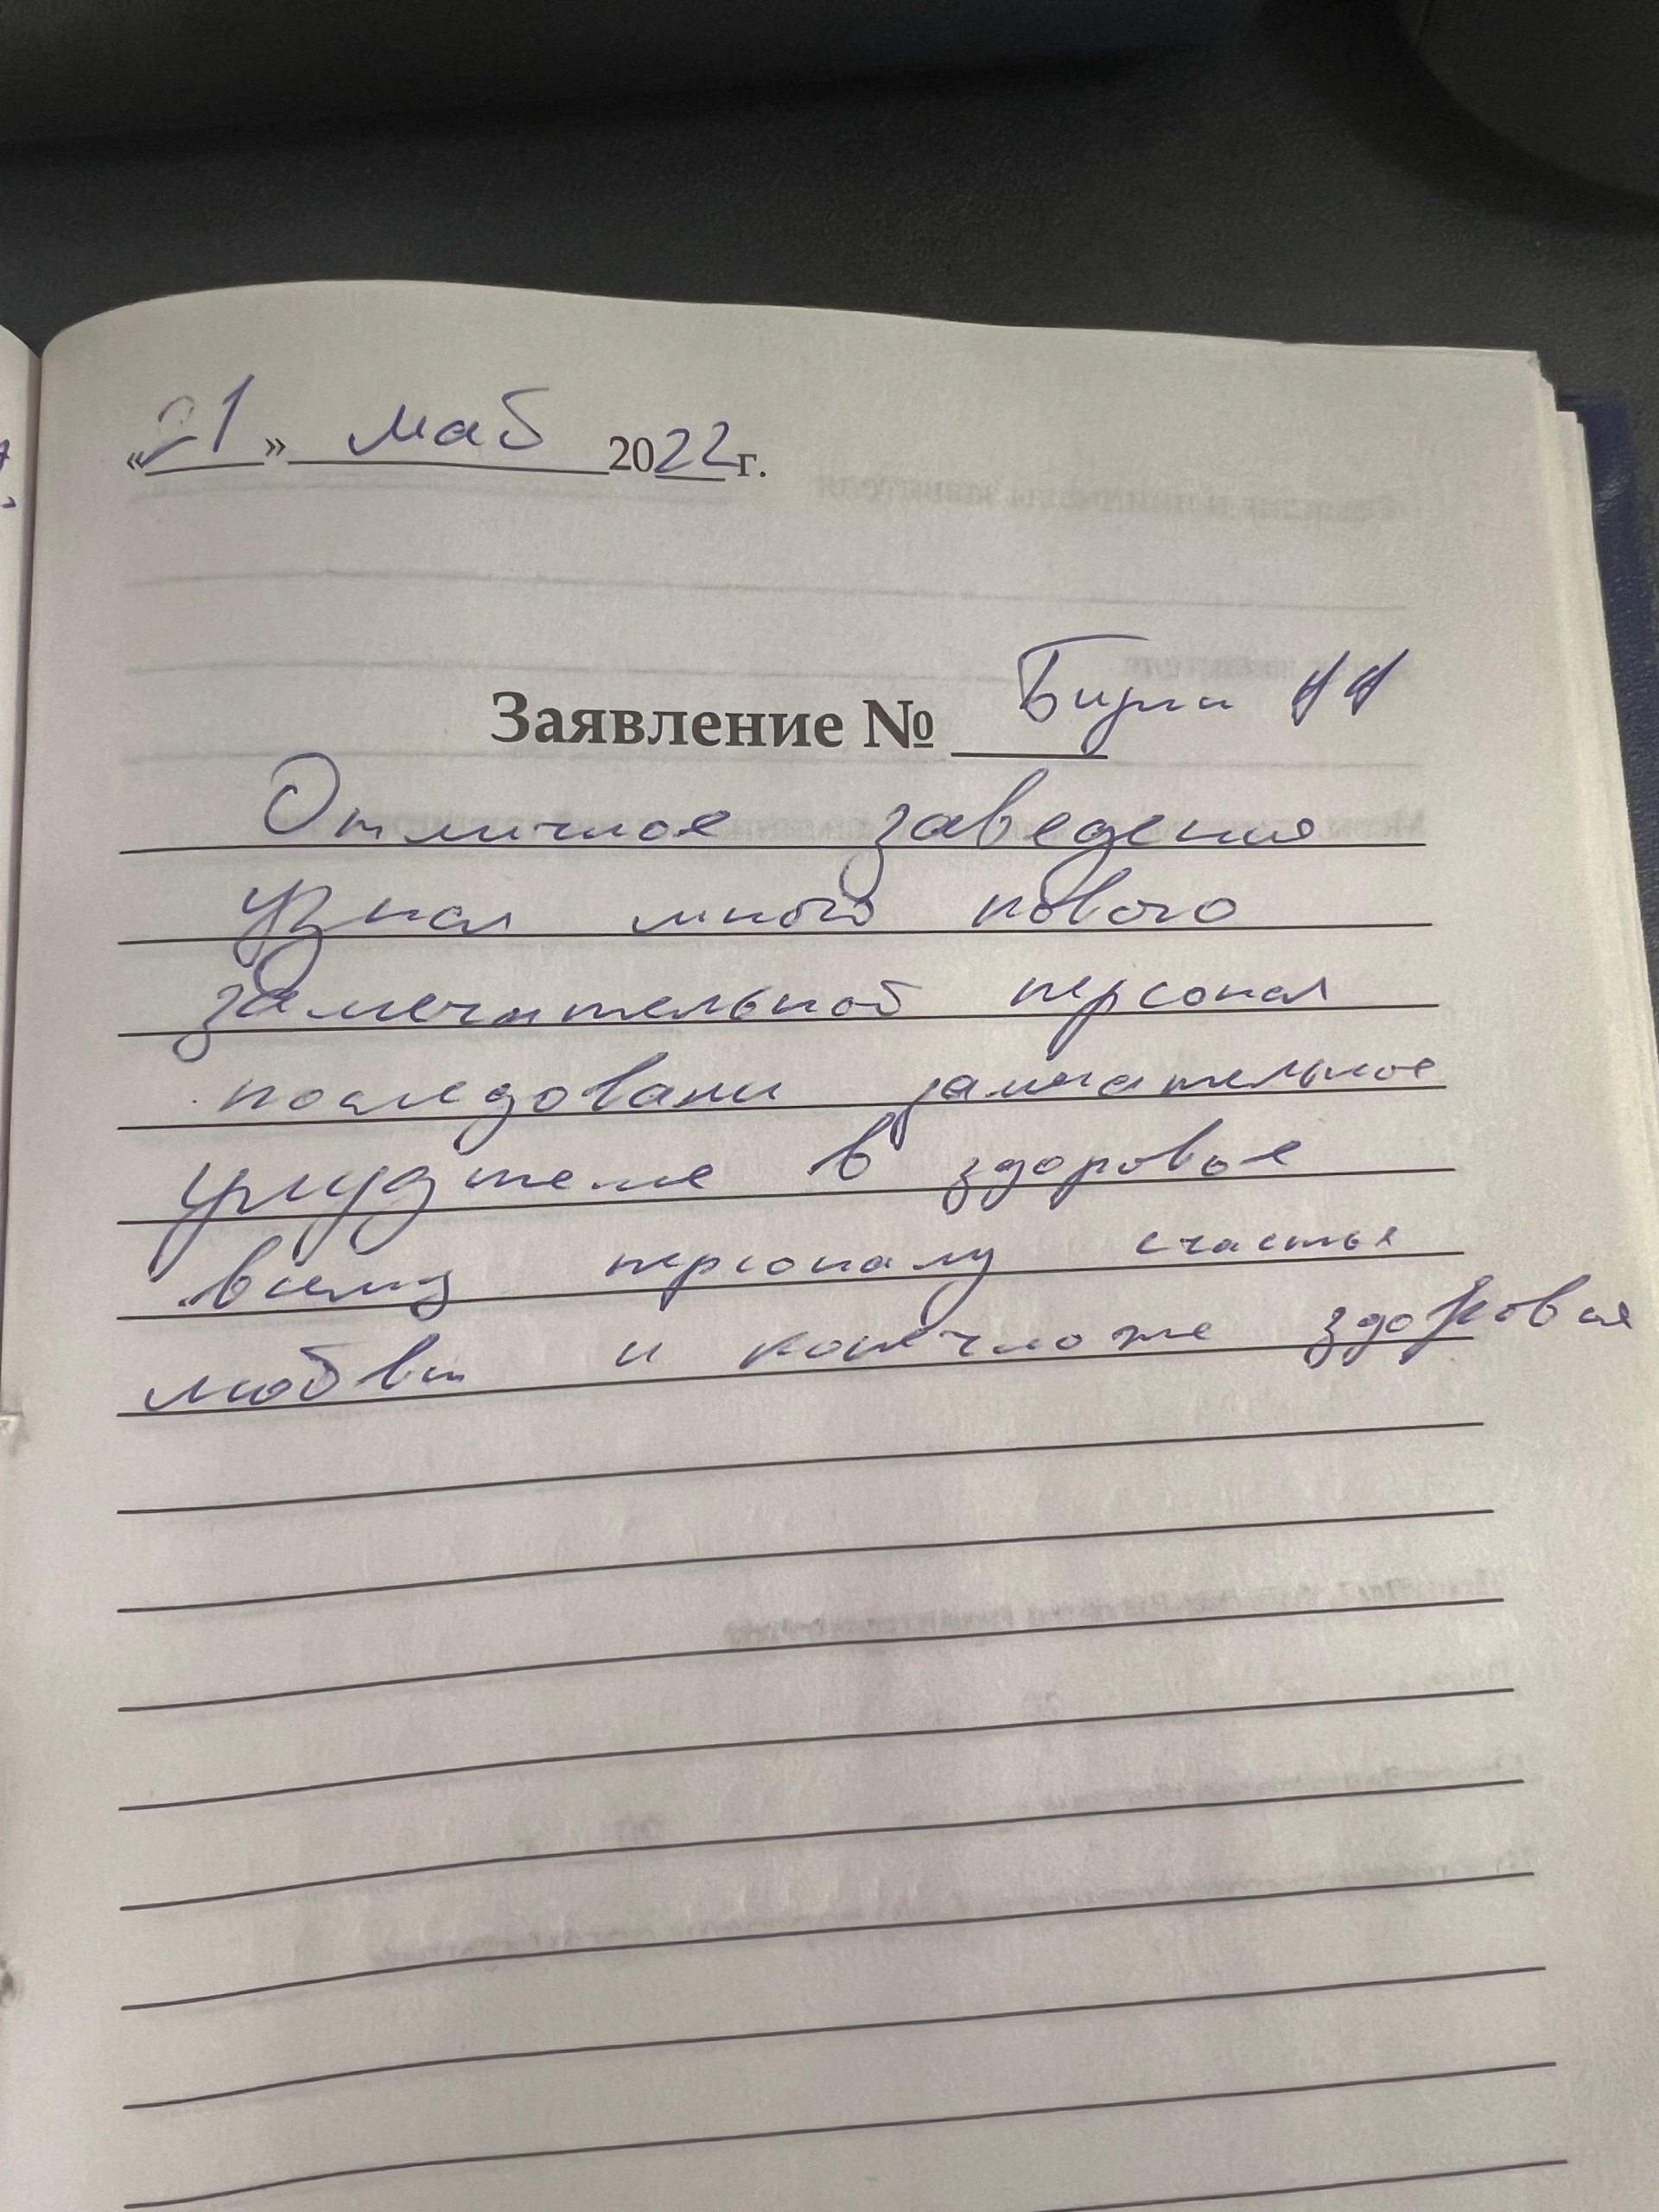 «21» май 2022г.
Заявление №
Отличное заведения
Узнал много нового
замечательной персонал
последовали замечательное
в здоровье
всему персоналу счастья
любви и конечно же здоровья